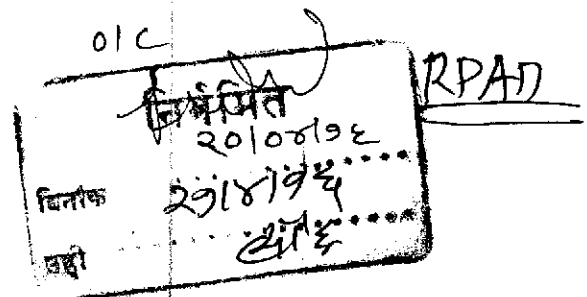 O/C
RPAD
निर्गमित
२०/०४/१६
दिनांक २१/४/१६
सही